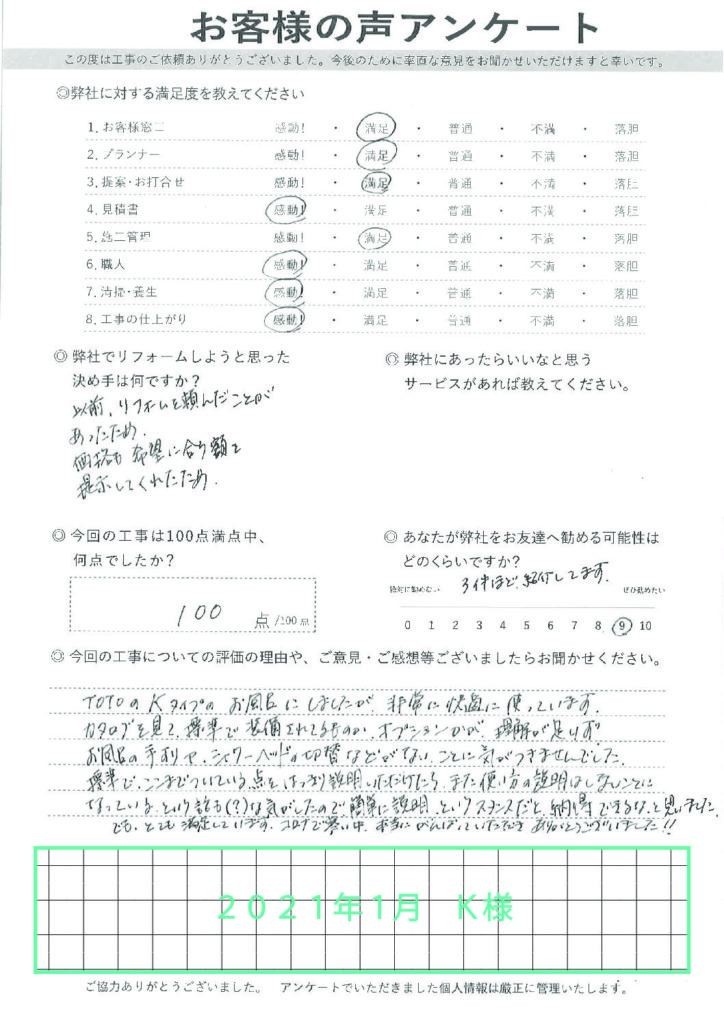 お客様の声アンケート
この度は工事のご依頼ありがとうございました。今後のために率直な意見をお聞かせいただけますと幸いです。
◎弊社に対する満足度を教えてください
1. お客様窓口 感動! ・ 満足 ・ 普通 ・ 不満 ・ 落胆
2. プランナー 感動! ・ 満足 ・ 普通 ・ 不満 ・ 落胆
3. 提案・お打合せ 感動! ・ 満足 ・ 普通 ・ 不満 ・ 落胆
4. 見積書 感動! ・ 満足 ・ 普通 ・ 不満 ・ 落胆
5. 施工管理 感動! ・ 満足 ・ 普通 ・ 不満 ・ 落胆
6. 職人 感動! ・ 満足 ・ 普通 ・ 不満 ・ 落胆
7. 清掃・養生 感動! ・ 満足 ・ 普通 ・ 不満 ・ 落胆
8. 工事の仕上がり 感動! ・ 満足 ・ 普通 ・ 不満 ・ 落胆
◎ 弊社でリフォームしようと思った
決め手は何ですか?
以前、リフォームを頼んだことが
あったため。
価格も希望に合う額を
提示してくれたため。
◎ 弊社にあったらいいなと思う
サービスがあれば教えてください。
◎ 今回の工事は100点満点中、
何点でしたか?
100 点 /100点
◎ あなたが弊社をお友達へ勧める可能性は
どのくらいですか?
3件ほど、紹介してます。
絶対に勧めない ぜひ勧めたい
0 1 2 3 4 5 6 7 8 9 10
◎ 今回の工事についての評価の理由や、ご意見・ご感想等ございましたらお聞かせください。
TOTOのKタイプのお風呂にしましたが、非常に快適に使っています。
カタログを見て、標準で装備されてるものか、オプションかが、理解が足りず
お風呂の手すりや、シャワーヘッドの切替などがないことに気がつきませんでした。
標準で、ここまでついている点を、はっきり説明いただけたら、また使い方の説明はしないことに
なっている、という話も(?)な気がしたので簡単に説明、というスタンスだと納得できるな、と思いました。
でも、とても満足しています。コロナで寒い中、本当にがんばっていただき ありがとうございました!!
2021年1月 K様
ご協力ありがとうございました。 アンケートでいただきました個人情報は厳正に管理いたします。